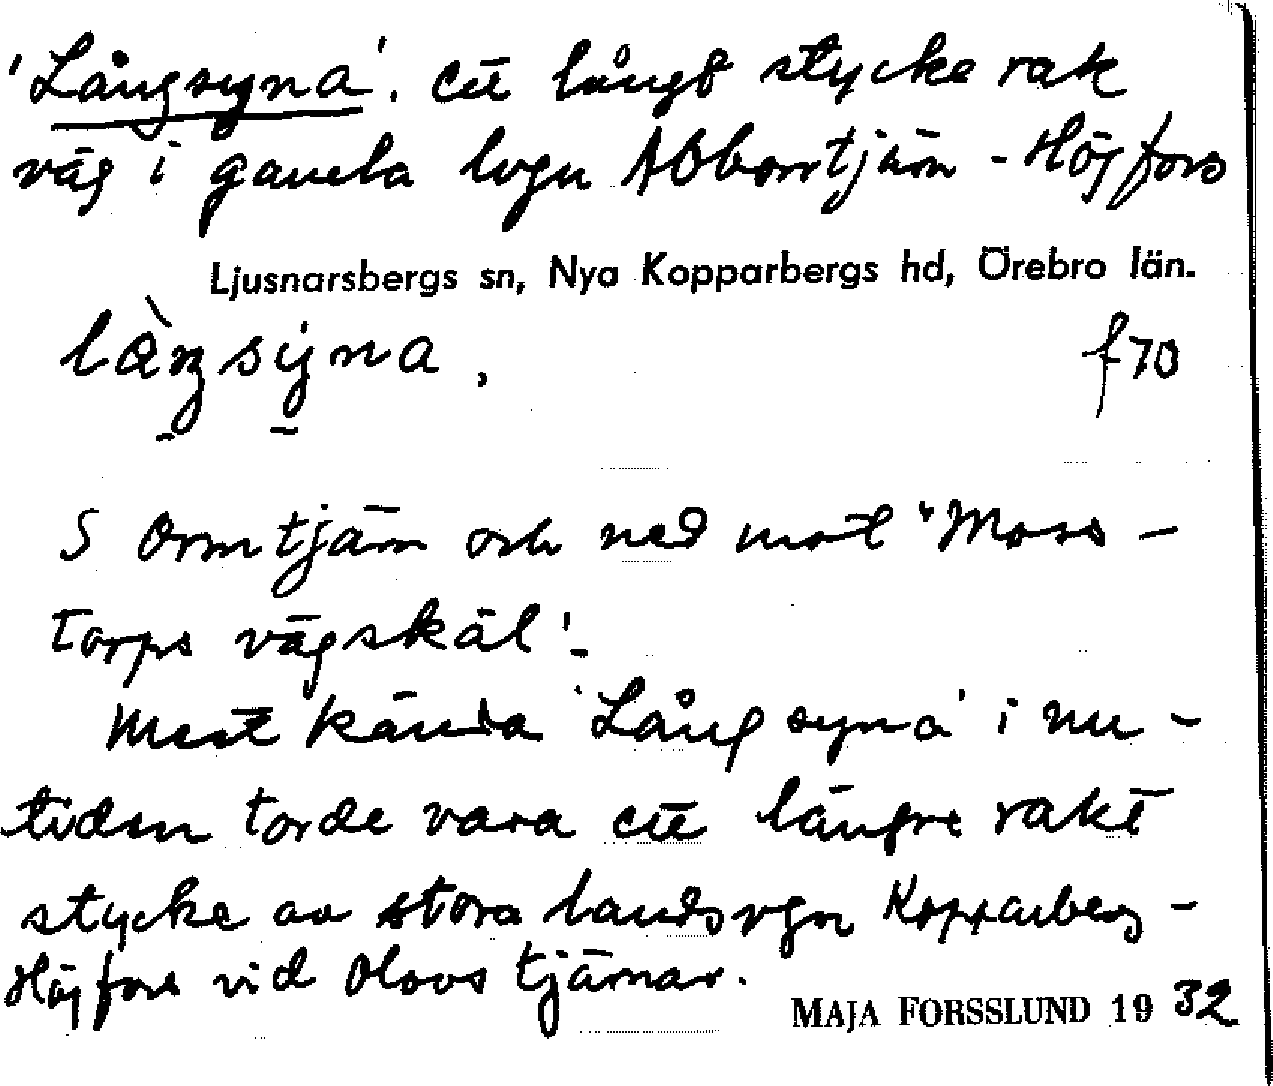 'Långsyna'. ett långt stycke rak
väg i gamla vägen Abborrtjärn - Högfors
Ljusnarsbergs sn, Nya Kopparbergs hd, Örebro län.
làŋsyna, f70
S Ormtjärn och ned mot "Moss-
torps vägskäl'.
Mest kända 'Långsyna' i nu-
tiden torde vara ett längre rakt
stycke av stora landsvgn Kopparberg-
Högfors vid Olovstjärnar.
MAJA FORSSLUND 1932